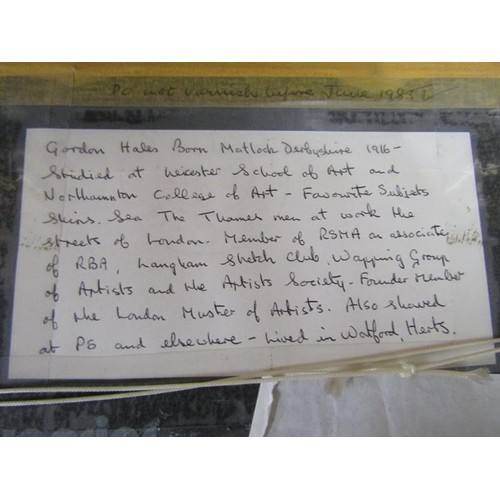 Do not varnish before June 1985!
Gordon Hales Born Matlock Derbyshire 1916-
Studied at Leicester School of Art and
Northampton College of Art - Favourite Subjets
Ships. Sea The Thames men at work the
streets of London. Member of RSMA an associate
of RBA, Langham Sketch Club, Wapping Group
of Artists and the Artists Society - Founder Member
of the London Muster of Artists. Also showed
at PS and elsewhere - Lived in Watford, Herts.